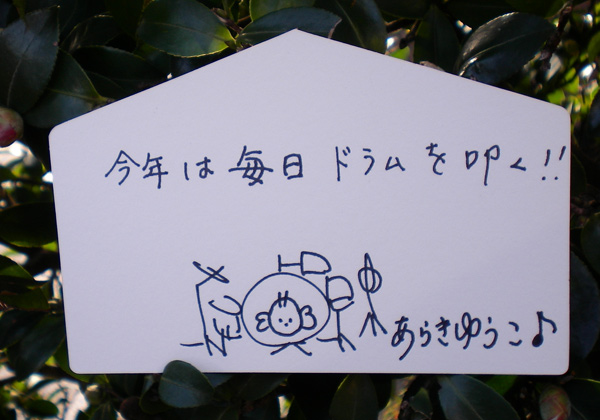 今年は毎日ドラムを叩く!!
あらきゆうこ♪